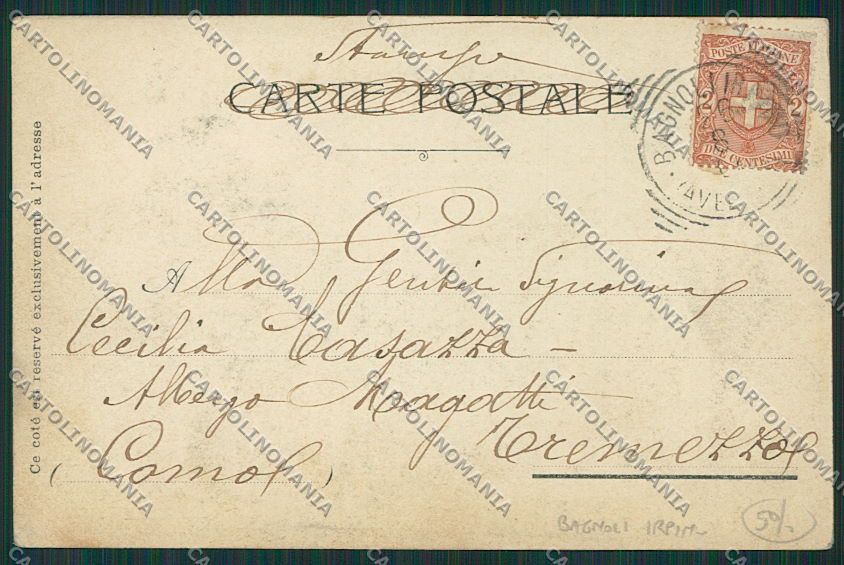 Stampe
CARTE POSTALE
POSTE ITALIANE
2 2
DUE CENTESIMI
BAGNOLI IRPINO
Ce coté est reservé exclusivement à l'adresse
Alla Gentile Signorina
Cecilia Casazza –
Albergo Magatti
Tremezzo
(Como)
BAGNOLI IRPINO
50/-
CARTOLINOMANIA